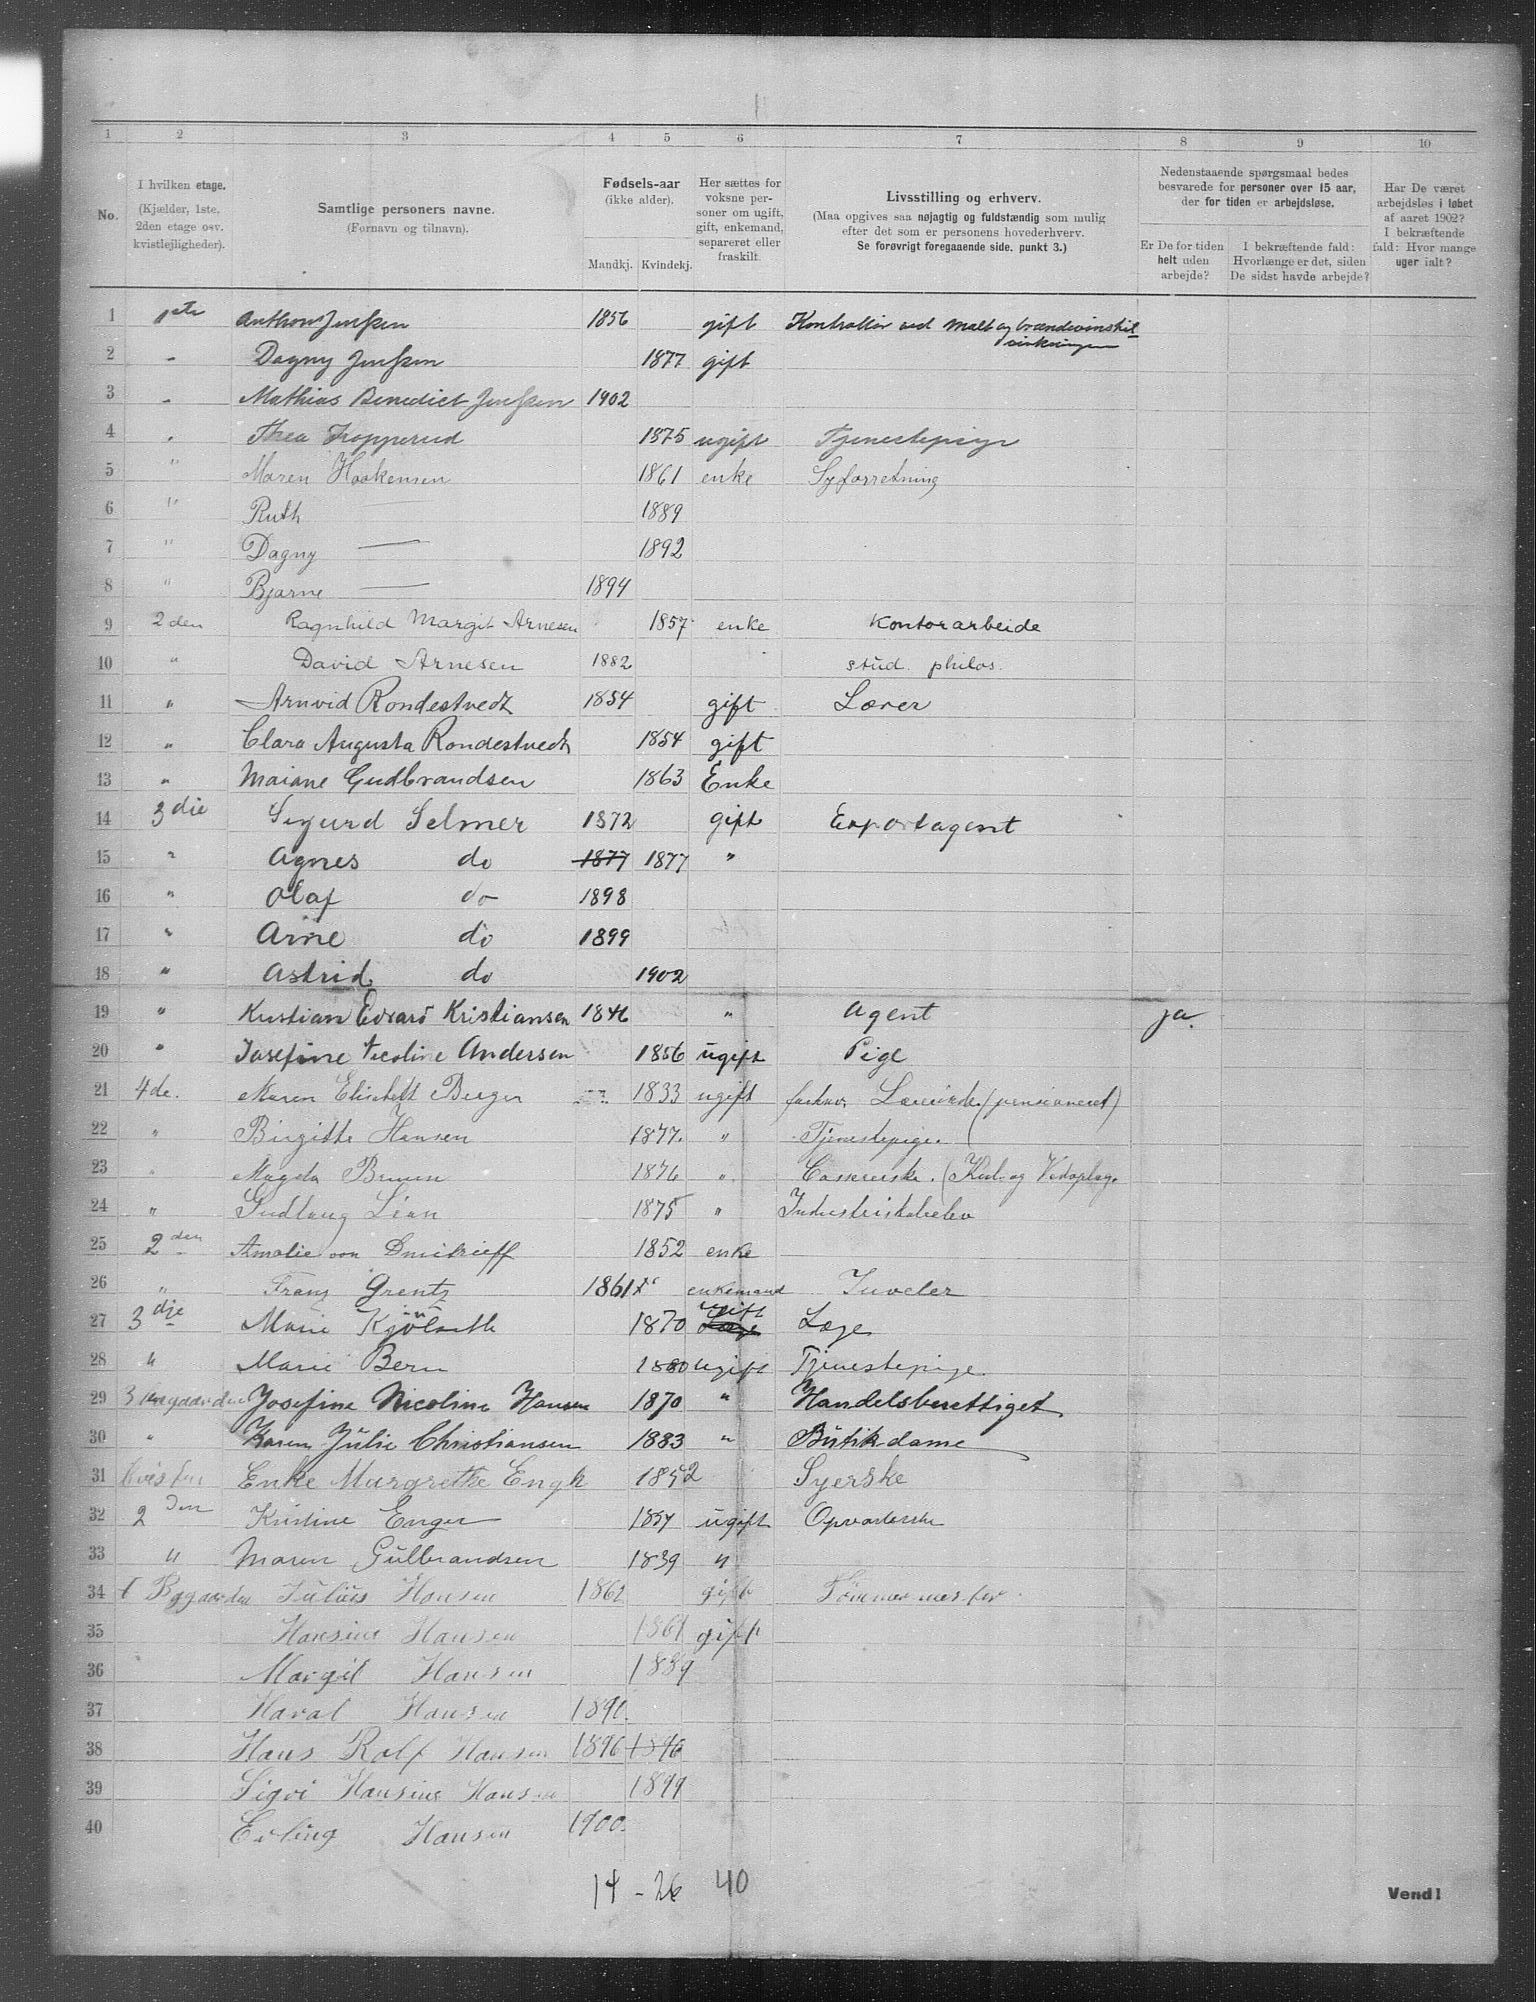 1 2 3 4 5 6 7 8 9 10
No.
I hvilken etage.
(Kjælder, 1ste,
2den etage osv.
kvistlejligheder).
Samtlige personers navne.
(Fornavn og tilnavn).
Fødsels-aar
(ikke alder).
Mandkj. Kvindekj.
Her sættes for
voksne per-
soner om ugift,
gift, enkemand,
separeret eller
fraskilt.
Livsstilling og erhverv.
(Maa opgives saa nøjagtig og fuldstændig som mulig
efter det som er personens hovederhverv.
Se forøvrigt foregaaende side. punkt 3.)
Nedenstaaende spørgsmaal bedes
besvarede for personer over 15 aar,
der for tiden er arbejdsløse.
Er De for tiden
helt uden
arbejde?
I bekræftende fald:
Hvorlænge er det, siden
De sidst havde arbejde?
Har De været
arbejdsløs i løbet
af aaret 1902?
I bekræftende
fald: Hvor mange
uger ialt?
1 1ste Anthon Jenssen 1856 gift Kontrollør ved Malt og brændevinstil-
virkningen
2 " Dagny Jenssen 1877 gift
3 " Mathias Benedict Jenssen 1902
4 " Thea Kopperud 1875 ugift Tjenestepige
5 " Maren Haakensen 1861 enke Syforretning
6 " Ruth — 1889
7 " Dagny — 1892
8 " Bjarne — 1894
9 2den Ragnhild Margit Arnesen 1857 enke Kontorarbeide
10 " David Arnesen 1882 stud. philos.
11 " Arnvid Rondestvedt 1854 gift Lærer
12 " Clara Augusta Rondestvedt 1854 gift
13 " Maiane Gudbrandsen 1863 Enke
14 3die Sigurd Selmer 1872 gift Exportagent
15 " Agnes do 1877 1877 "
16 " Olaf do 1898
17 " Arne do 1899
18 " Astrid do 1902
19 " Kristian Edvard Kristiansen 1846 " Agent ja.
20 " Josefine Nicoline Andersen 1856 ugift Pige
21 4de. Maren Elisabeth Berger 1833 ugift Lærerinde (pensioneret)
22 " Birgitte Hansen 1877. " Tjenestepige.
23 " Magda Bruun 1876 " Casserske. (Kul- og Vedoplag.
24 " Gudlaug Lian 1875 " Industriskoleelev
25 2den Amalie von Dmitrieff 1852 enke
26 " Franz Grentz 1861 enkemand Juveler
27 3dje Marie Kjølseth 1870 ugift Læge
28 " Marie Bern 1880 ugift Tjenestepige
29 3 Josefine Nicoline Hansen 1870 " Handelsberettiget
30 " Karen Julie Christiansen 1883 " Butikdame
31 Kvisten Enke Margrethe Engh 1852 Syerske
32 2den Kristine Enger 1857 ugift Opvarterske
33 " Maren Gulbrandsen 1839 "
34 1 Bagaarden Julius Hansen 1862 gift Tømmermester
35 Hansine Hansen 1861 gift
36 Margit Hansen 1889
37 Haral Hansen 1890.
38 Hans Rolf Hansen 1896 1896
39 Sigvi Hansine Hansen 1899
40 Erling Hansen 1900.
14 - 26 40
Vend!